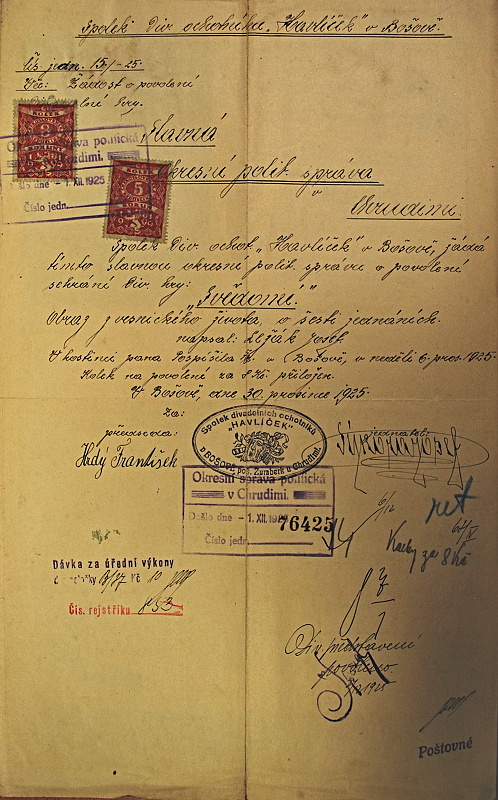 Spolek Div. ochotníků „Havlíček" v Bošově.
Čís. jedn. 15/-25.
Věc: Žádost o povolení
divadelní hry.
Slavná
Okresní polit. správa
v
Chrudimi.
KOLEK
3
5
Okresní správa politická
v Chrudimi.
Došlo dne - 1. XII. 1925
Číslo jedn.
Spolek Div. ochot. „Havlíček" v Bošově, žádá
tímto slavnou okresní polit. správu o povolení
sehrání div. hry:
„Svědomí."
Obraz z vesnického života, o šesti jednáních.
napsal: Ležák Josef
V hostinci pana Pospíšila K. v Bošově, v neděli 6. pros. 1925.
Kolek na povolení za 8 Kč přiložen.
V Bošově, dne 30. prosince 1925.
Za:
předseda:
jednatel:
Hrdý František
Spolek divadelních ochotníků
„HAVLÍČEK"
v BOSOVĚ, poš. Žumberk u Chrudimi.
Okresní správa politická
v Chrudimi.
Došlo dne - 1. XII. 1925
76425
Číslo jedn.
6/12
ret
Kolky za 8 Kč
Dávka za úřední výkony
Kč 10
Čís. rejstříku 853
Div. představení
povoleno
1925
Poštovné